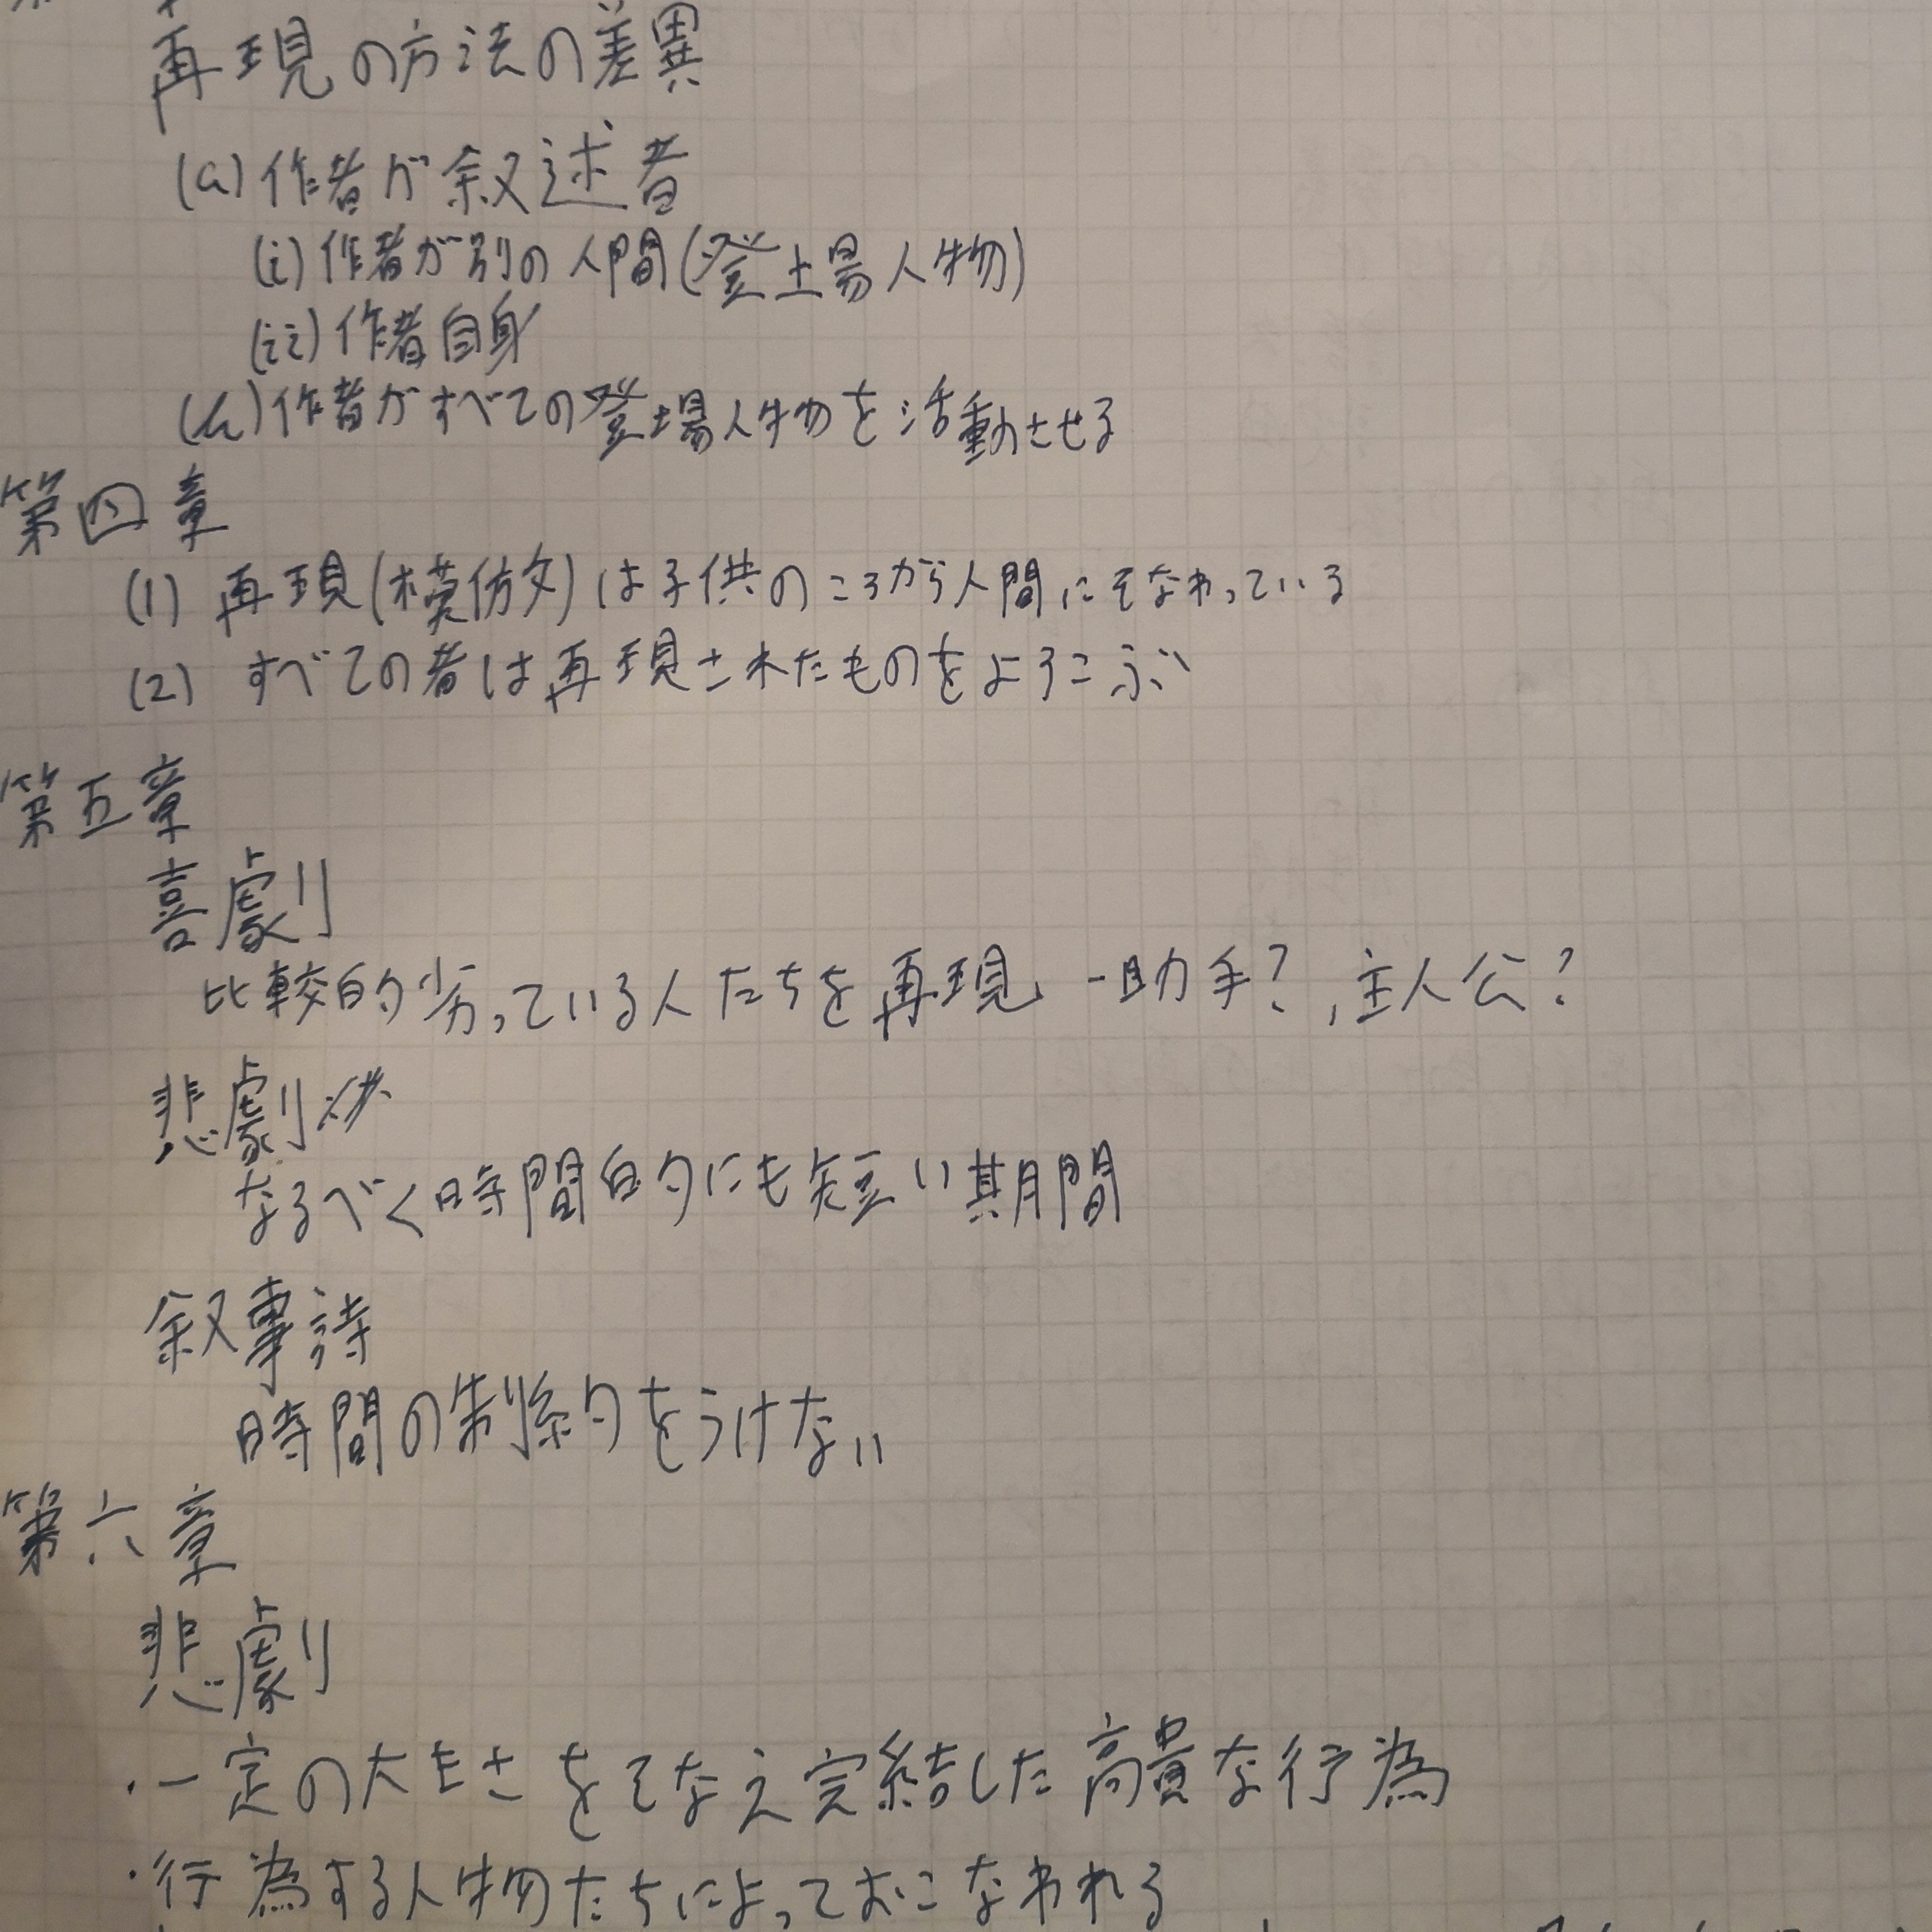 再現の方法の差異
(a) 作者が叙述者
(i) 作者が別の人間(登場人物)
(ii) 作者自身
作者がすべての登場人物を活動させる
第四章
(1) 再現(模倣)は子供のころから人間にそなわっている
(2) すべての者は再現されたものをよろこぶ
第五章
喜劇
比較的劣っている人たちを再現 - 助手?, 主人公?
悲劇
なるべく時間的にも短い期間
叙事詩
時間の制約をうけない
第六章
悲劇
・一定の大きさをそなえ完結した高貴な行為
・行為する人物たちによっておこなわれる